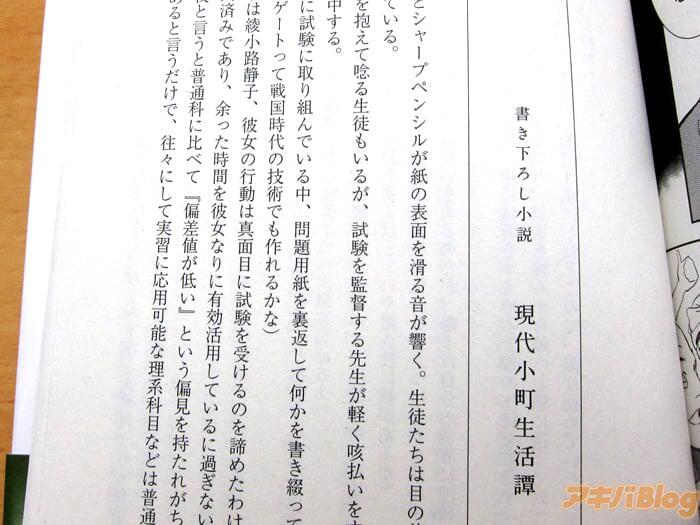 書き下ろし小説　現代小町生活譚
とシャープペンシルが紙の表面を滑る音が響く。生徒たちは目の前
ている。
を抱えて唸る生徒もいるが、試験を監督する先生が軽く咳払いをす
中する。
に試験に取り組んでいる中、問題用紙を裏返して何かを書き綴って
ゲートって戦国時代の技術でも作れるかな）
は綾小路静子、彼女の行動は真面目に試験を受けるのを諦めたわけ
済みであり、余った時間を彼女なりに有効活用しているに過ぎない
校と言うと普通科に比べて『偏差値が低い』という偏見を持たれがち
あると言うだけで、往々にして実習に応用可能な理系科目などは普通
アキバBlog